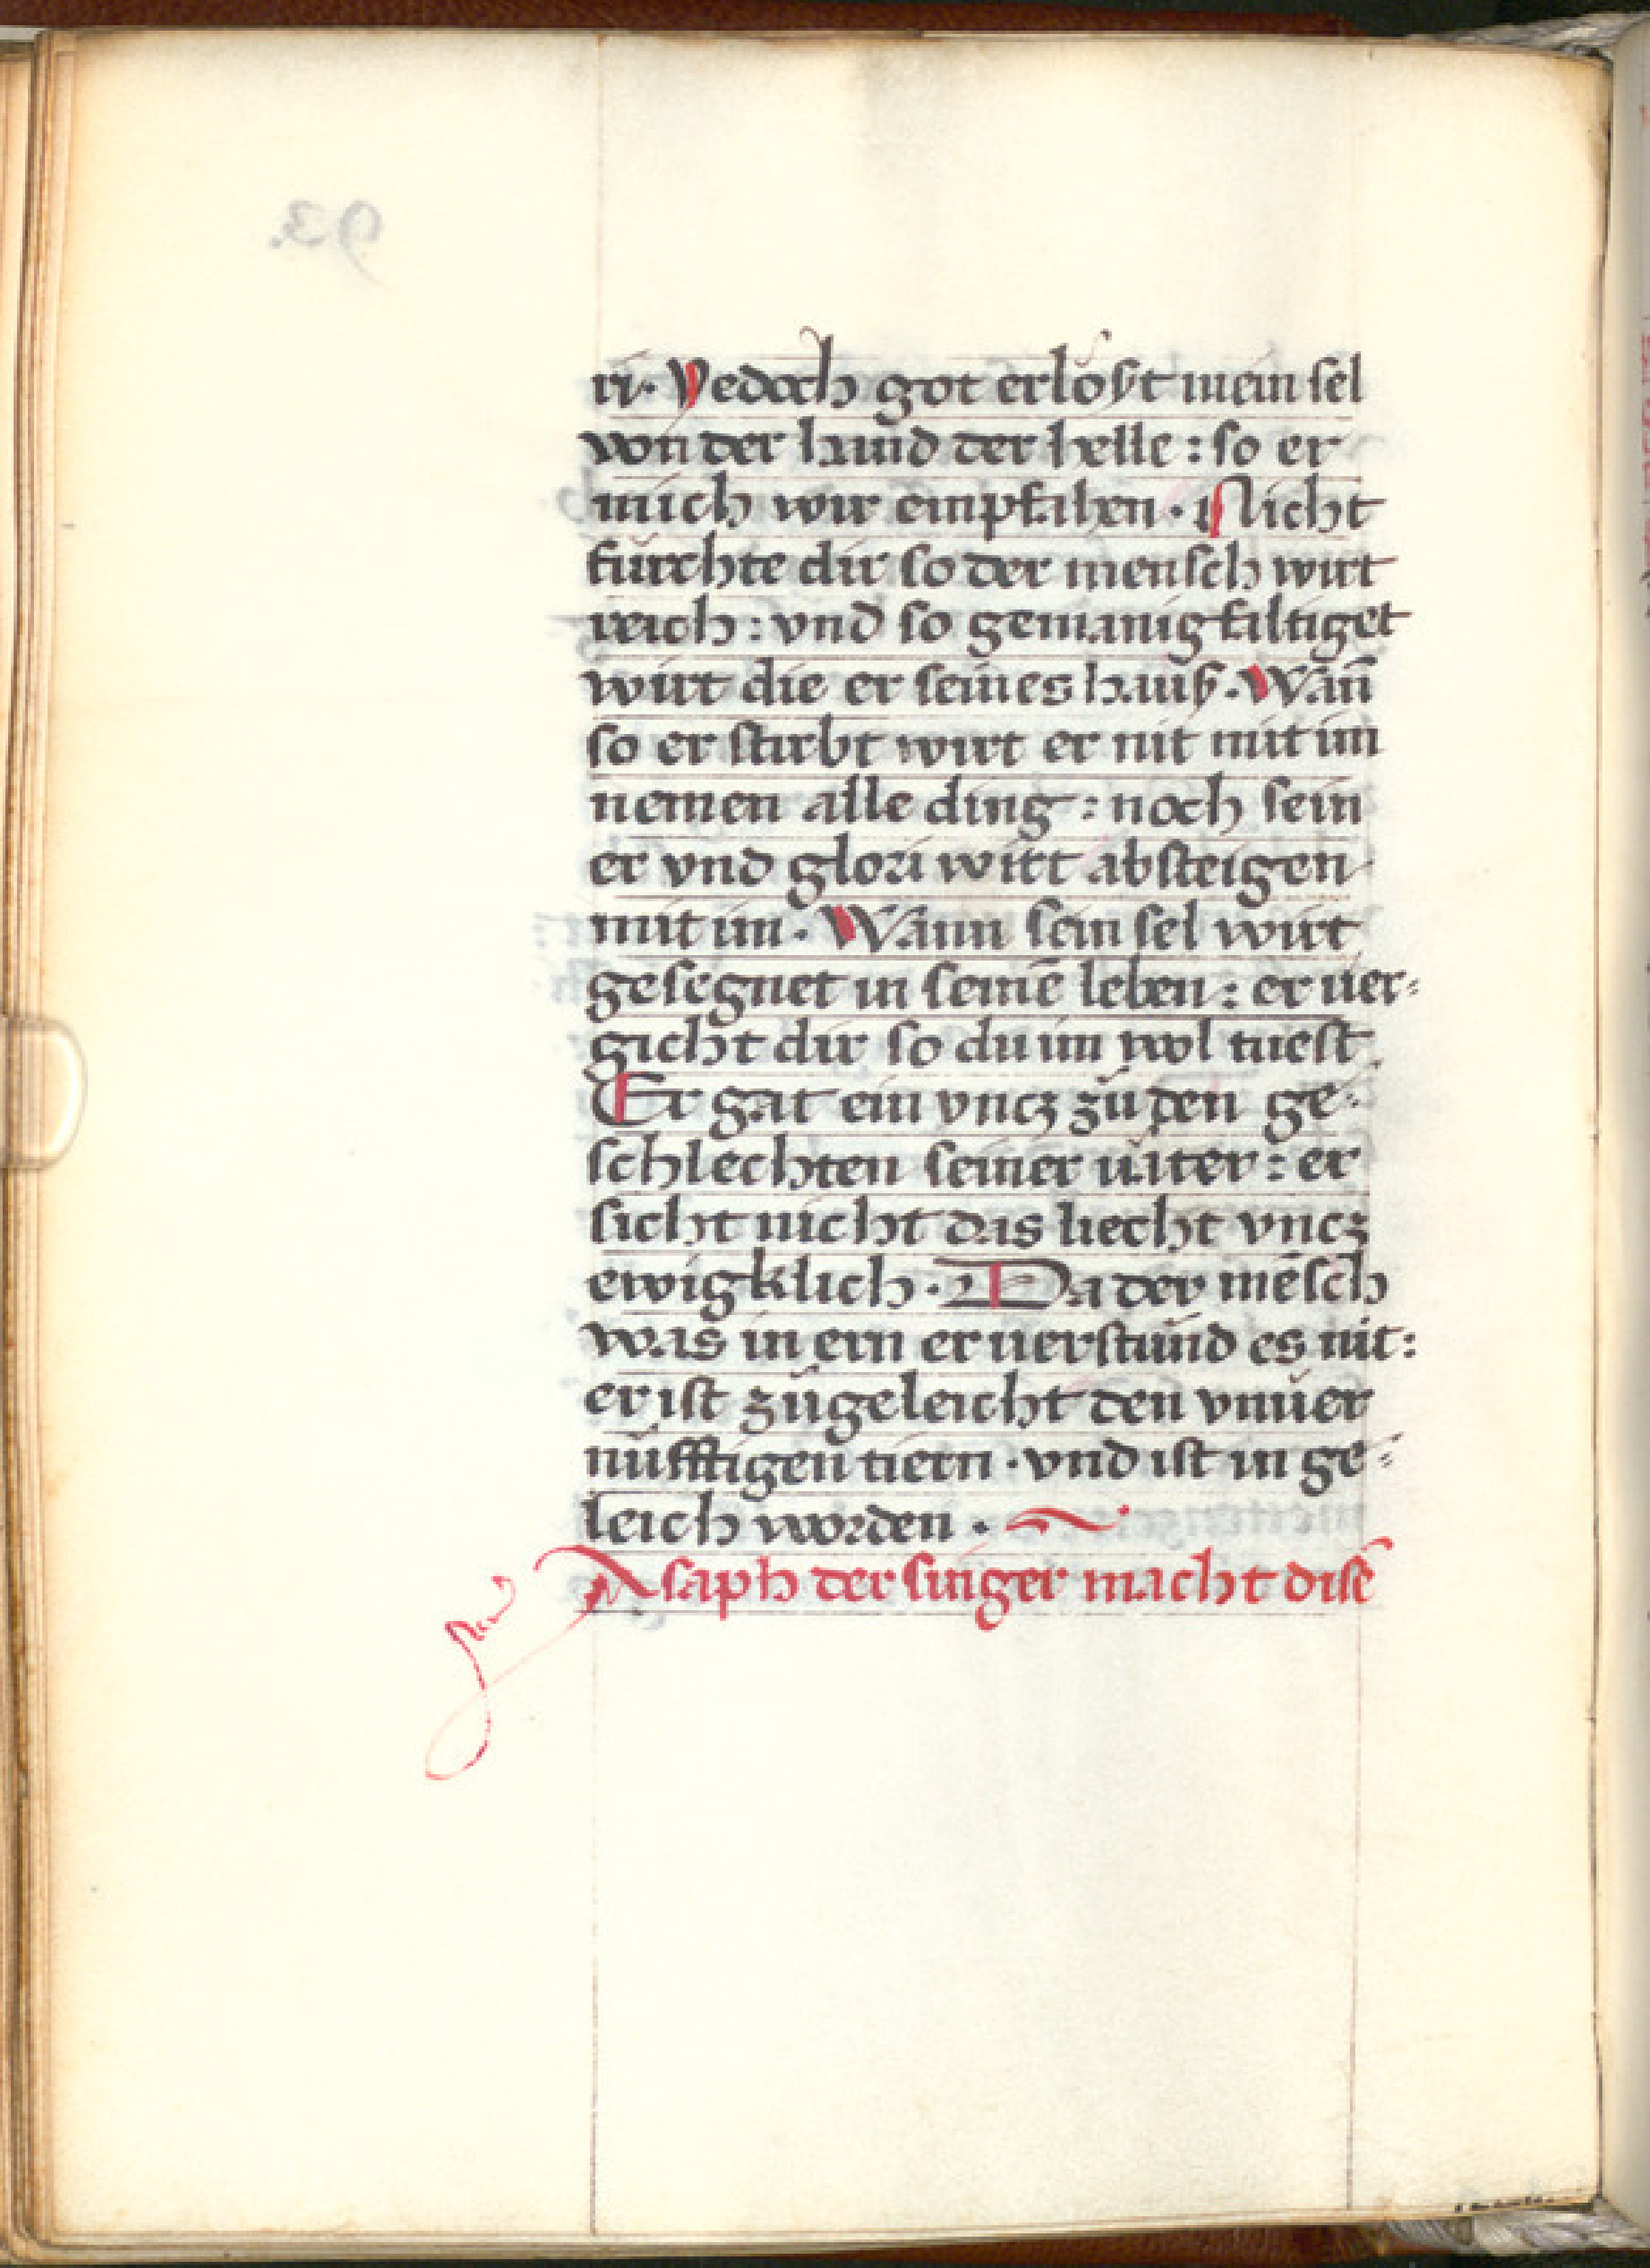 ir. Yedoch got erlößt mein sel
von der hand der helle : so er
mich wir empfahen . Nicht
fürchte dir so der mensch wirt
reich : vnd so gemanigfaltiget
wirt die er seines hauß . Wañ
so er stirbt wirt er nit mit im
nemen alle ding : noch sein
er vnd glori wirt absteigen
mit im . Wann sein sel wirt
gesegnet in seinē leben : er uer-
gicht dir so du im wol tuest
Er gat ein vncz zů den ge-
schlechten seiner uäter : er
sicht nicht das liecht vncz
ewigklich . Da der mēsch
was in ern er uerstůnd es nit :
er ist zůgeleicht den vnuer
nüfftigen tiern . vnd ist in ge-
leich worden .
Asaph der singer macht disē